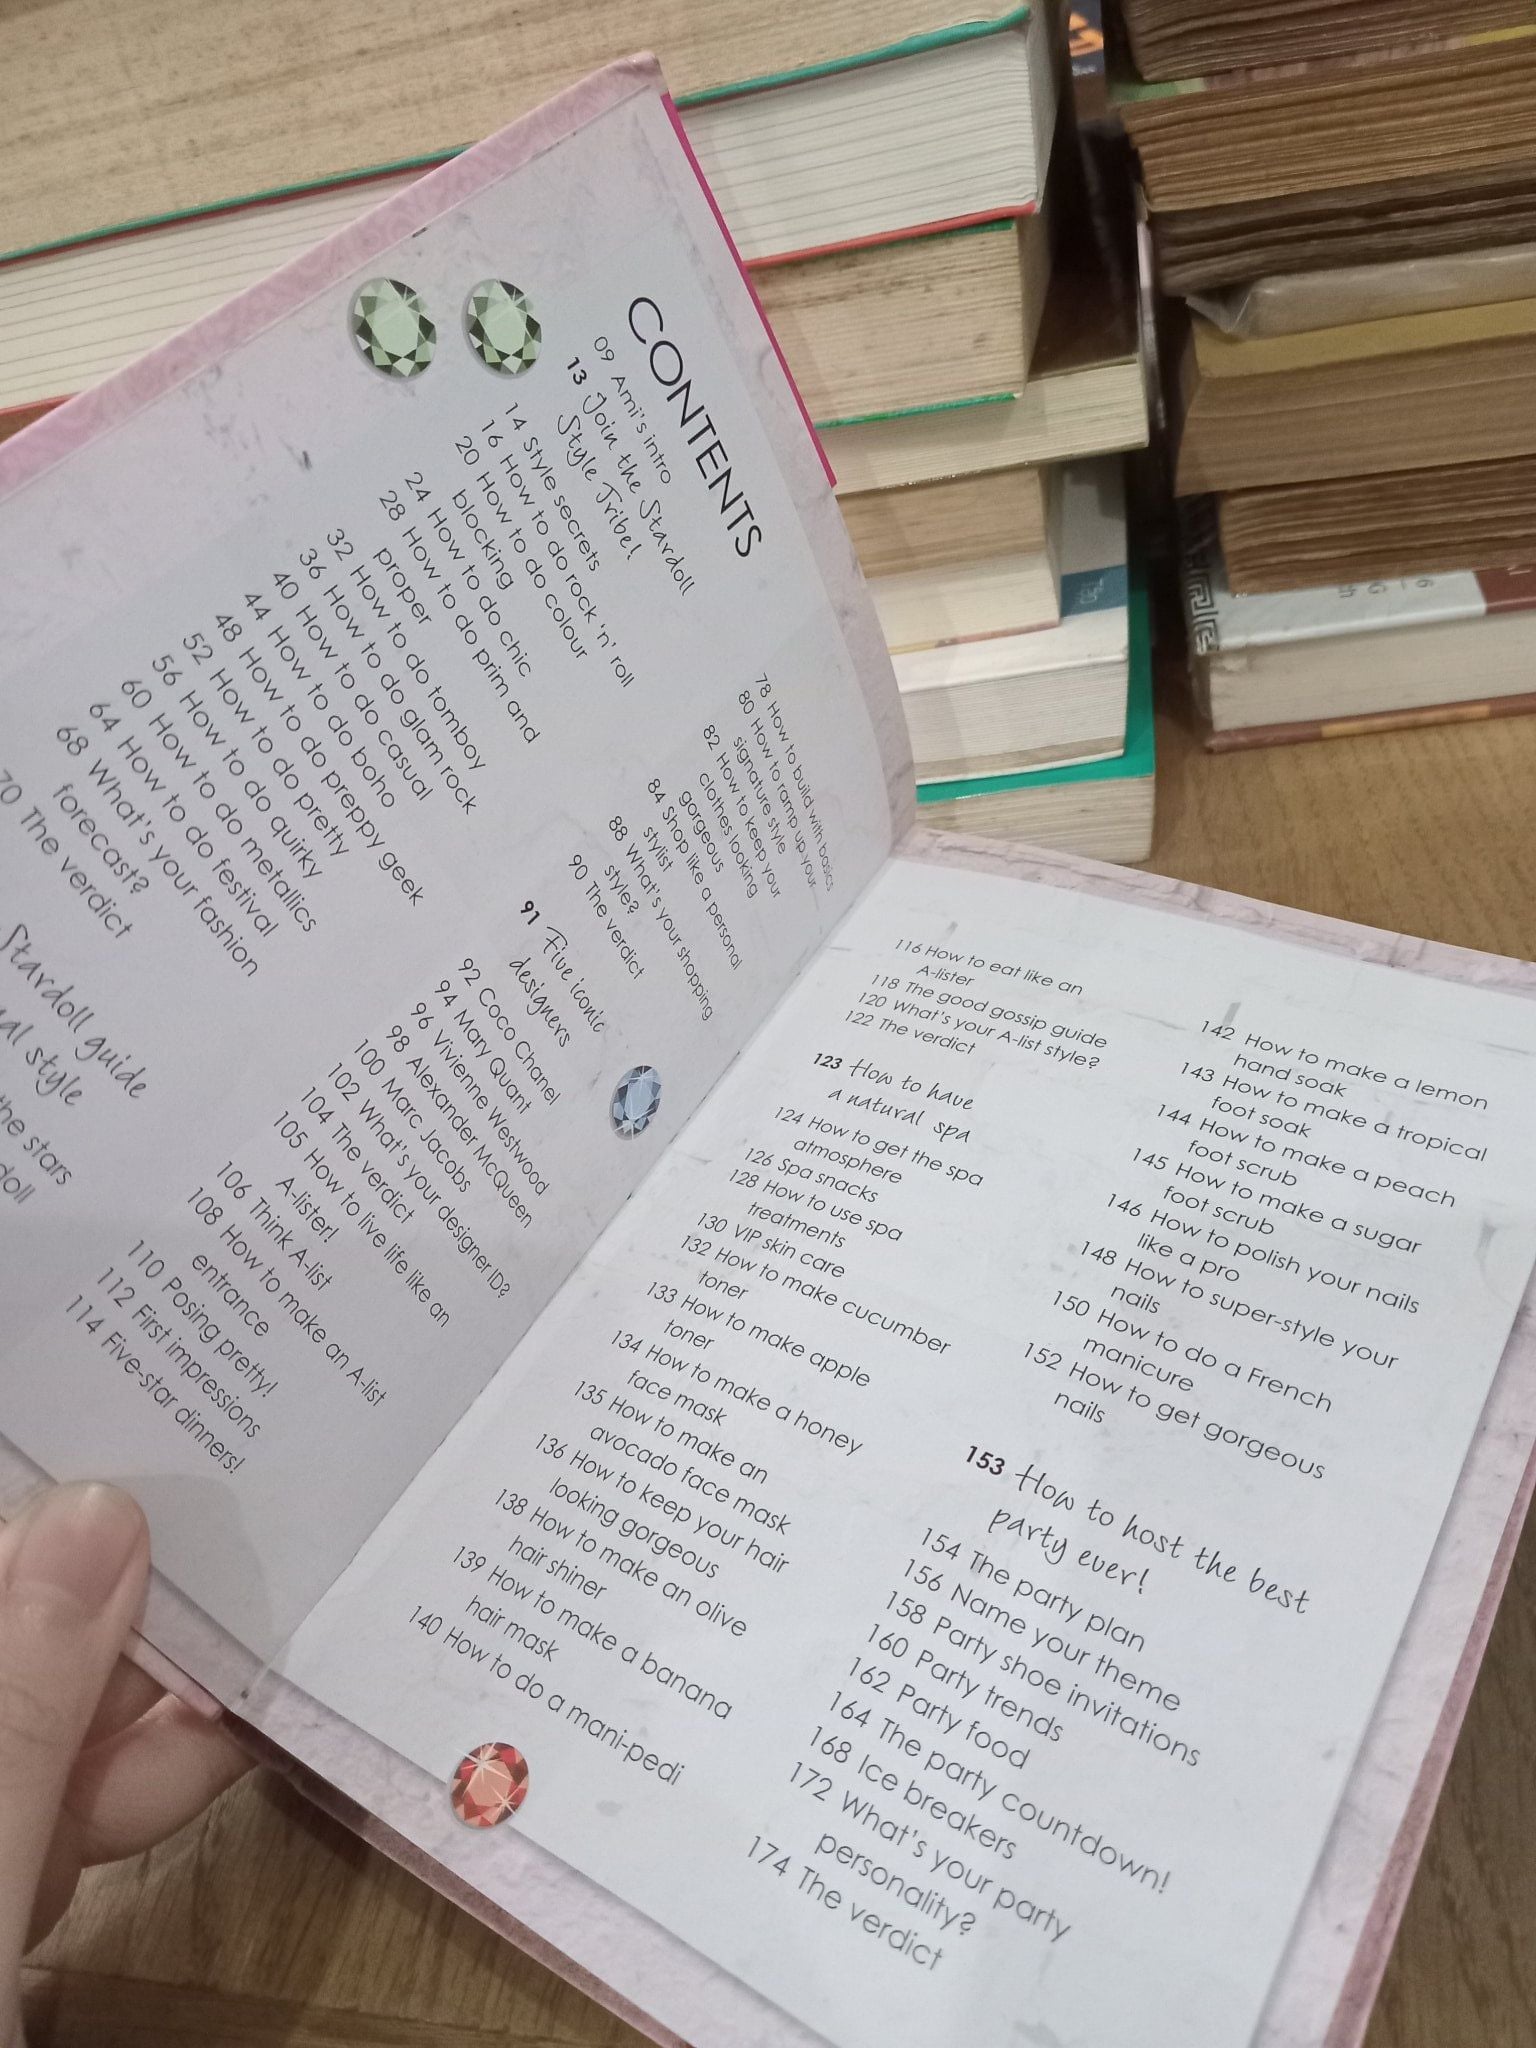 CONTENTS
09 Ami's intro
13 Join the Stardoll
Style Tribe!
14 Style secrets
16 How to do rock 'n' roll
20 How to do colour
blocking
24 How to do chic
28 How to do prim and
proper
32 How to do tomboy
36 How to do glam rock
40 How to do casual
44 How to do boho
48 How to do preppy geek
52 How to do pretty
56 How to do quirky
60 How to do metallics
64 How to do festival
68 What's your fashion
forecast?
70 The verdict
Stardoll guide
style
the stars
78 How to build with basics
80 How to ramp up your
signature style
82 How to keep your
clothes looking
gorgeous
84 Shop like a personal
stylist
88 What's your shopping
style?
90 The verdict
91 Five iconic
designers
92 Coco Chanel
94 Mary Quant
96 Vivienne Westwood
98 Alexander McQueen
100 Marc Jacobs
102 What's your designer ID?
104 The verdict
105 How to live life like an
A-lister!
106 Think A-list
108 How to make an A-list
entrance
110 Posing pretty!
112 First impressions
114 Five-star dinners!
116 How to eat like an
A-lister
118 The good gossip guide
120 What's your A-list style?
122 The verdict
123 How to have
a natural spa
124 How to get the spa
atmosphere
126 Spa snacks
128 How to use spa
treatments
130 VIP skin care
132 How to make cucumber
toner
133 How to make apple
toner
134 How to make a honey
face mask
135 How to make an
avocado face mask
136 How to keep your hair
looking gorgeous
138 How to make an olive
hair shiner
139 How to make a banana
hair mask
140 How to do a mani-pedi
142 How to make a lemon
hand soak
143 How to make a tropical
foot soak
144 How to make a peach
foot scrub
145 How to make a sugar
foot scrub
146 How to polish your nails
like a pro
148 How to super-style your
nails
150 How to do a French
manicure
152 How to get gorgeous
nails
153 How to host the best
party ever!
154 The party plan
156 Name your theme
158 Party shoe invitations
160 Party trends
162 Party food
164 The party countdown!
168 Ice breakers
172 What's your party
personality?
174 The verdict